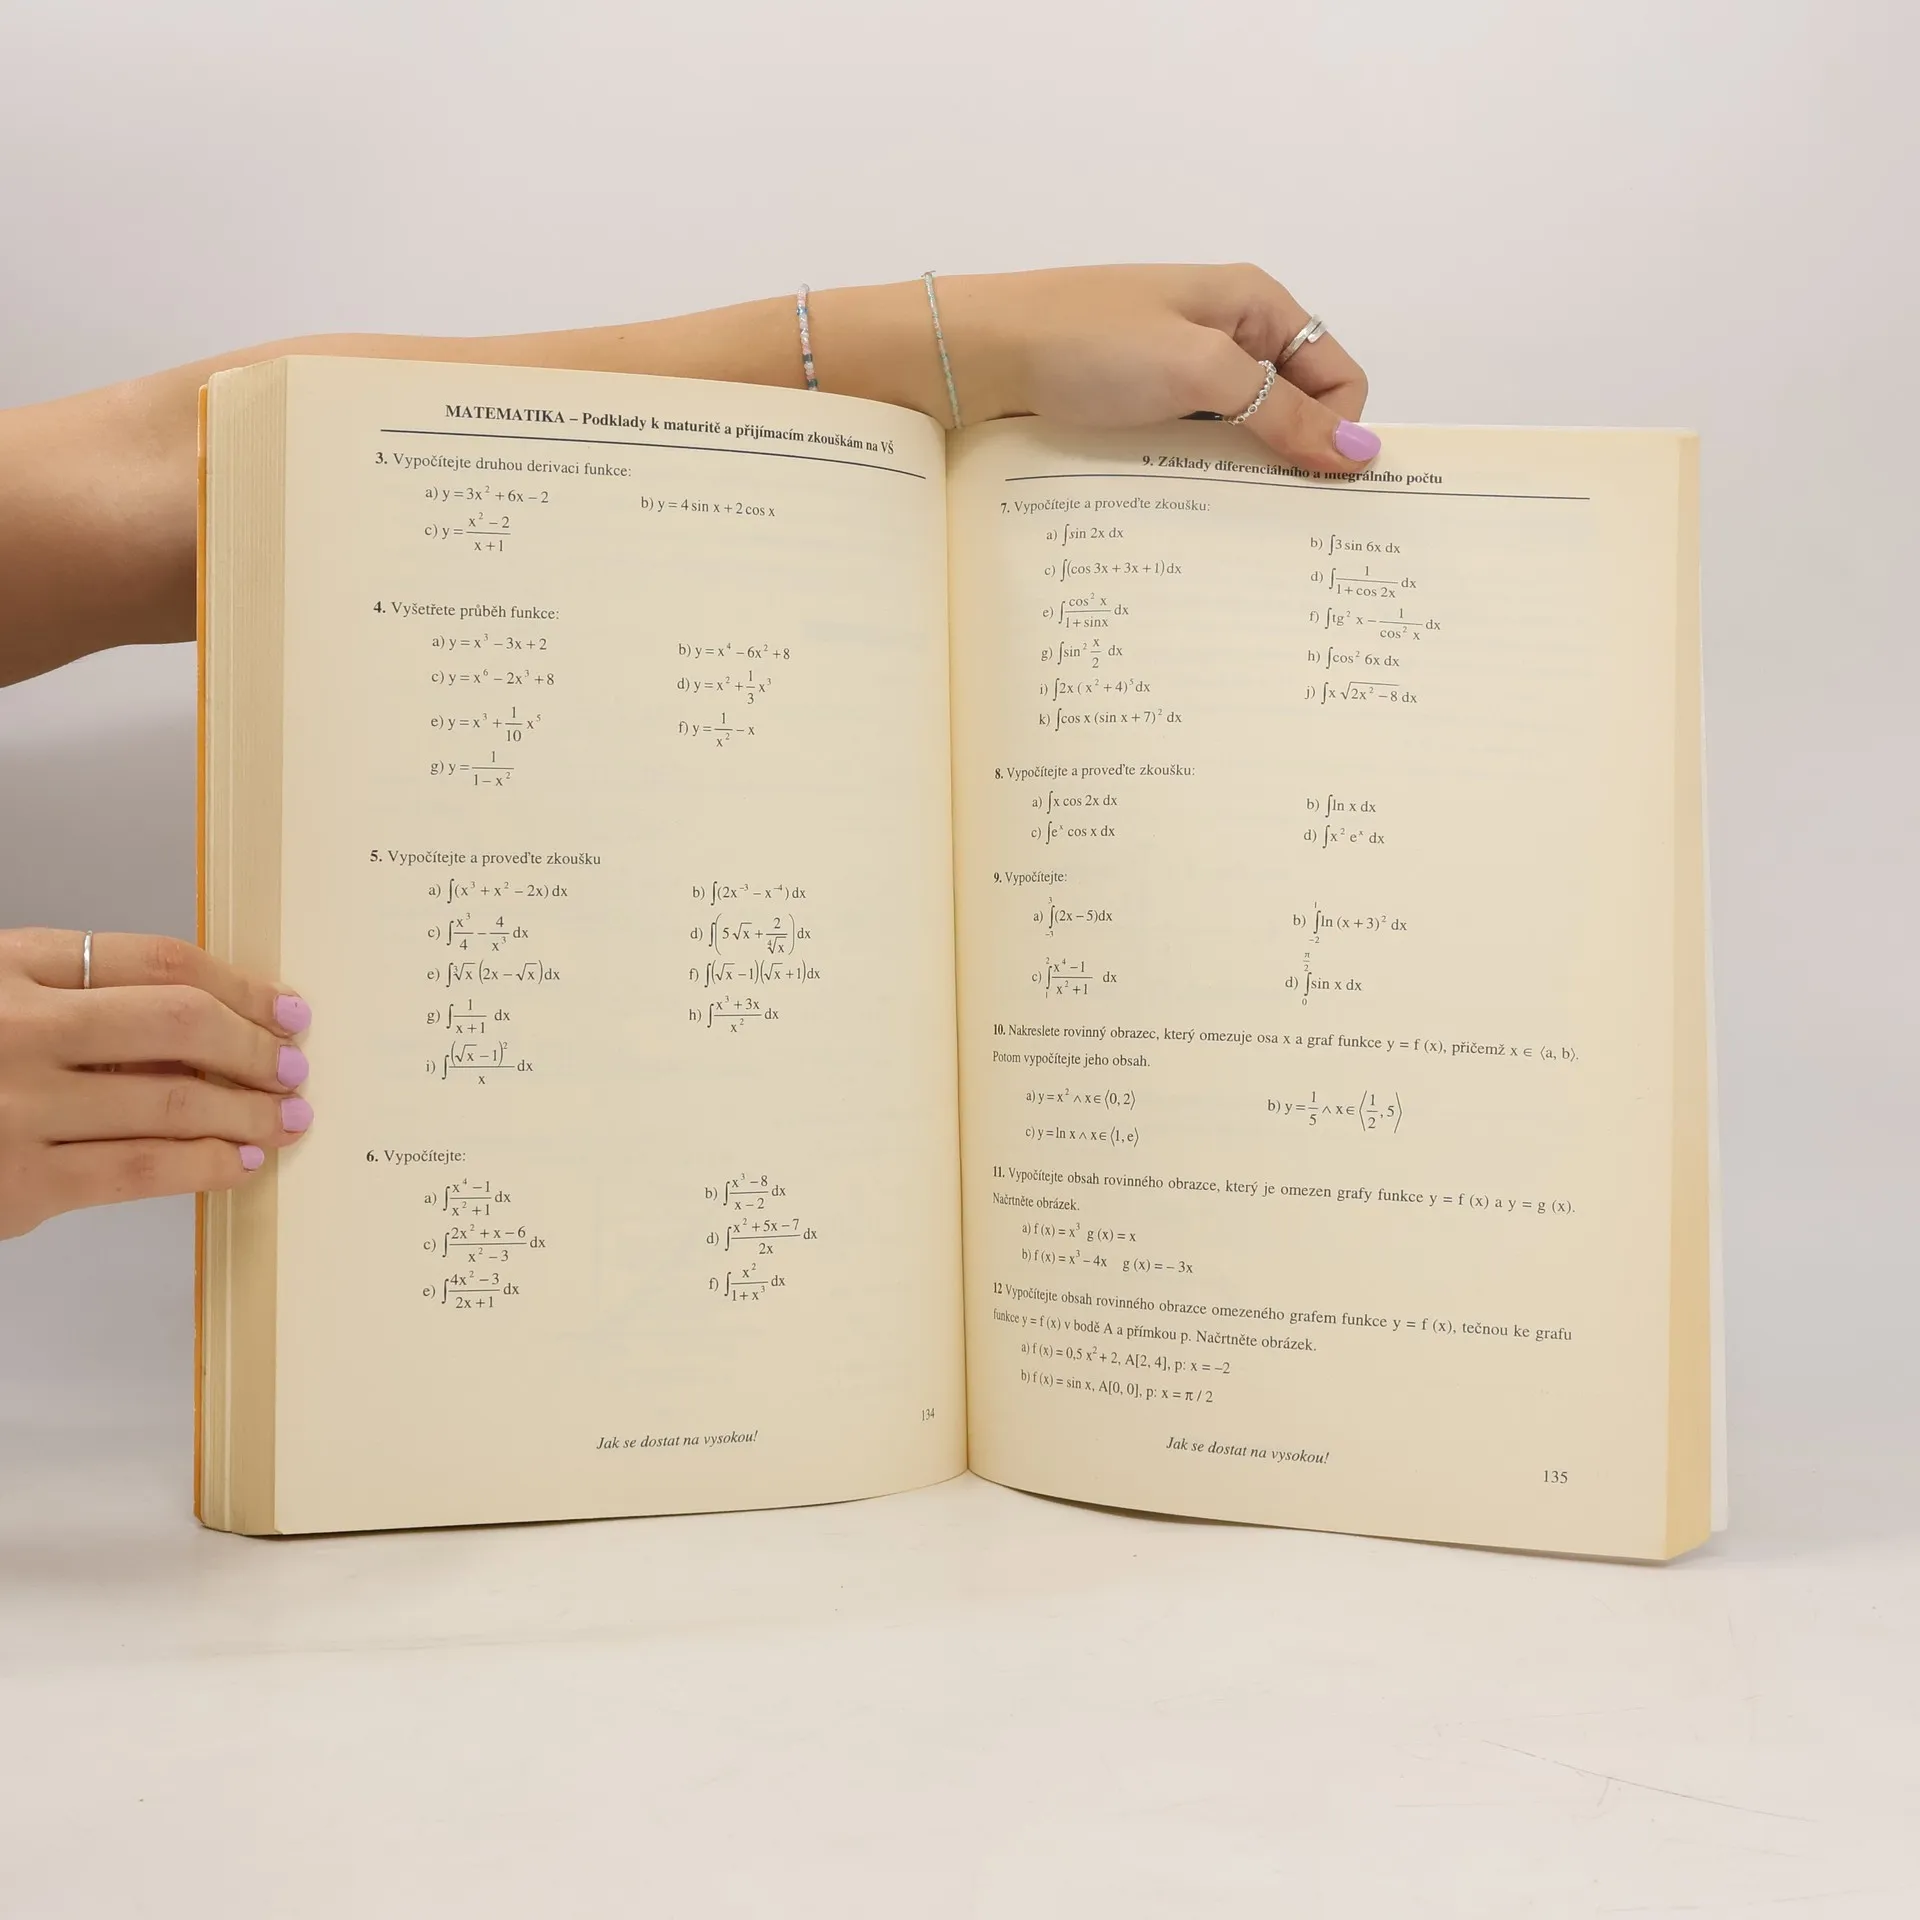 MATEMATIKA – Podklady k maturitě a přijímacím zkouškám na VŠ
3. Vypočítejte druhou derivaci funkce:
a) y = 3x² + 6x – 2
b) y = 4 sin x + 2 cos x
c) y = (x² – 2)/(x + 1)
4. Vyšetřete průběh funkce:
a) y = x³ – 3x + 2
b) y = x⁴ – 6x² + 8
c) y = x⁶ – 2x³ + 8
d) y = x² + 1/3 x³
e) y = x³ + 1/10 x⁵
f) y = 1/x² – x
g) y = 1/(1 – x²)
5. Vypočítejte a proveďte zkoušku
a) ∫(x³ + x² – 2x) dx
b) ∫(2x⁻³ – x⁻⁴) dx
c) ∫x³/4 – 4/x³ dx
d) ∫(5√x + 2/∜x) dx
e) ∫∛x (2x – √x) dx
f) ∫(√x – 1)(√x + 1) dx
g) ∫1/(x + 1) dx
h) ∫(x³ + 3x)/x² dx
i) ∫(√x – 1)²/x dx
6. Vypočítejte:
a) ∫(x⁴ – 1)/(x² + 1) dx
b) ∫(x³ – 8)/(x – 2) dx
c) ∫(2x² + x – 6)/(x² – 3) dx
d) ∫(x² + 5x – 7)/2x dx
e) ∫(4x² – 3)/(2x + 1) dx
f) ∫x²/(1 + x³) dx
134
Jak se dostat na vysokou!
9. Základy diferenciálního a integrálního počtu
7. Vypočítejte a proveďte zkoušku:
a) ∫sin 2x dx
b) ∫3 sin 6x dx
c) ∫(cos 3x + 3x + 1) dx
d) ∫1/(1 + cos 2x) dx
e) ∫cos² x/(1 + sinx) dx
f) ∫tg² x – 1/cos² x dx
g) ∫sin² x/2 dx
h) ∫cos² 6x dx
i) ∫2x (x² + 4)⁵ dx
j) ∫x √(2x² – 8) dx
k) ∫cos x (sin x + 7)² dx
8. Vypočítejte a proveďte zkoušku:
a) ∫x cos 2x dx
b) ∫ln x dx
c) ∫eˣ cos x dx
d) ∫x² eˣ dx
9. Vypočítejte:
a) ∫₋₃³(2x – 5)dx
b) ∫₋₂¹ln (x + 3)² dx
c) ∫₁²(x⁴ – 1)/(x² + 1) dx
d) ∫₀^(π/2) sin x dx
10. Nakreslete rovinný obrazec, který omezuje osa x a graf funkce y = f (x), přičemž x ∈ ⟨a, b⟩.
Potom vypočítejte jeho obsah.
a) y = x² ∧ x ∈ ⟨0, 2⟩
b) y = 1/5 ∧ x ∈ ⟨1/2, 5⟩
c) y = ln x ∧ x ∈ ⟨1, e⟩
11. Vypočítejte obsah rovinného obrazce, který je omezen grafy funkce y = f (x) a y = g (x).
Načrtněte obrázek.
a) f (x) = x³ g (x) = x
b) f (x) = x³ – 4x g (x) = – 3x
12 Vypočítejte obsah rovinného obrazce omezeného grafem funkce y = f (x), tečnou ke grafu
funkce y = f (x) v bodě A a přímkou p. Načrtněte obrázek.
a) f (x) = 0,5 x² + 2, A[2, 4], p: x = –2
b) f (x) = sin x, A[0, 0], p: x = π / 2
Jak se dostat na vysokou!
135